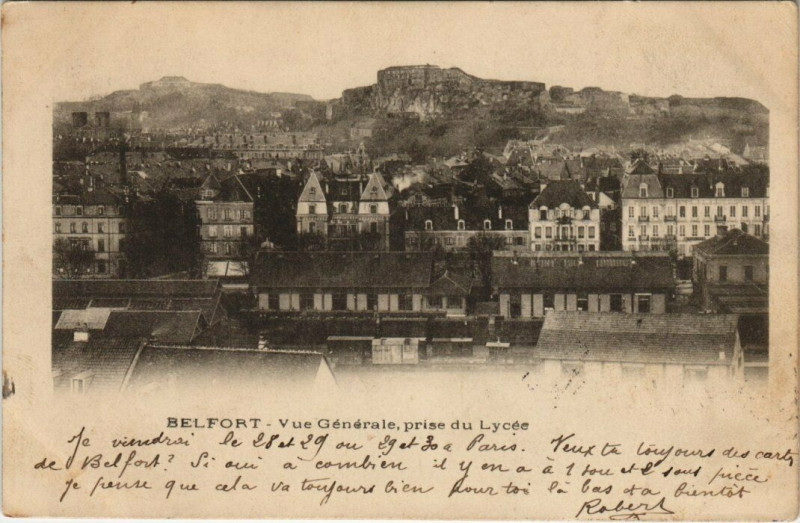 BELFORT - Vue Générale, prise du Lycée
Je viendrai le 28 et 29 ou 29 et 30 a Paris. Veux tu toujours des cartes
de Belfort? Si oui à combien il y en a à 1 sou et 2 sous pièce
Je pense que cela va toujours bien pour toi là bas et a bientôt
Robert